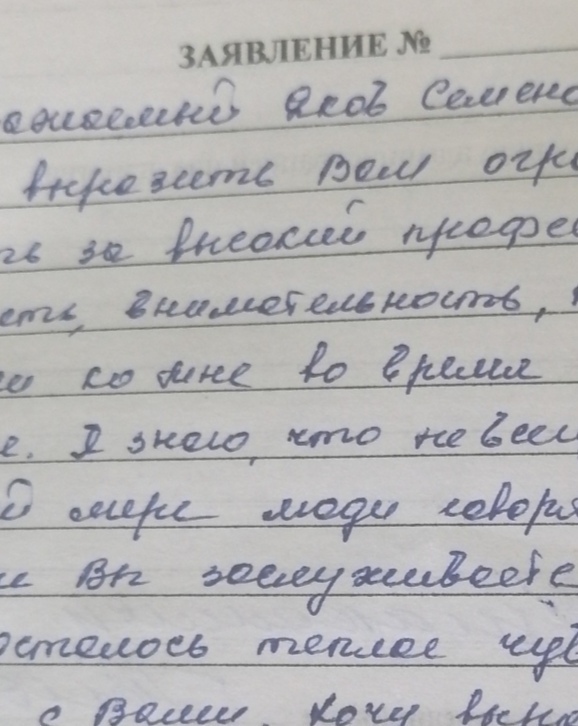 ЗАЯВЛЕНИЕ №
ажаемый Яков Семено
выразить Вам огро
ть за высокий профес
сть, внимательность,
ко мне во время
е. Я знаю, что не всег
й мере люди говоря
Вы заслуживаете
осталось теплое чув
с Вами. Хочу